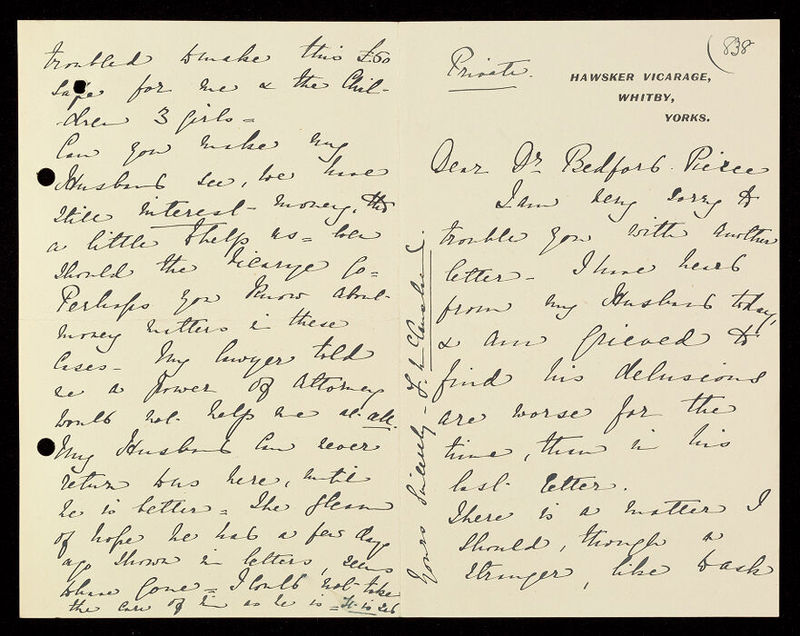 (838
Private.
HAWSKER VICARAGE,
WHITBY,
YORKS.
Dear Dr Bedford Pierce
I am very sorry to
trouble you with another
letter - I have heard
from my Husband today,
& am grieved to
find his delusions
are worse for the
time, than in his
last letter.
There is a matter I
should, though a
stranger, like to ask
troubled to make this £50
safe for me & the Chil-
dren 3 girls =
Can you make my
Husband see, we have
still interest - money, tho
a little to help us = even
should the Vicarage go =
Perhaps you know about
money matters in these
Cases - My lawyer told
me a power of Attorney
would not help me at all.
My Husband can never
return to us here, until
he is better = The gleam
of hope he had a few days
ago shown in letters, seems
to have gone = I could not take
the care of him as he is =
Yours Sincerely -